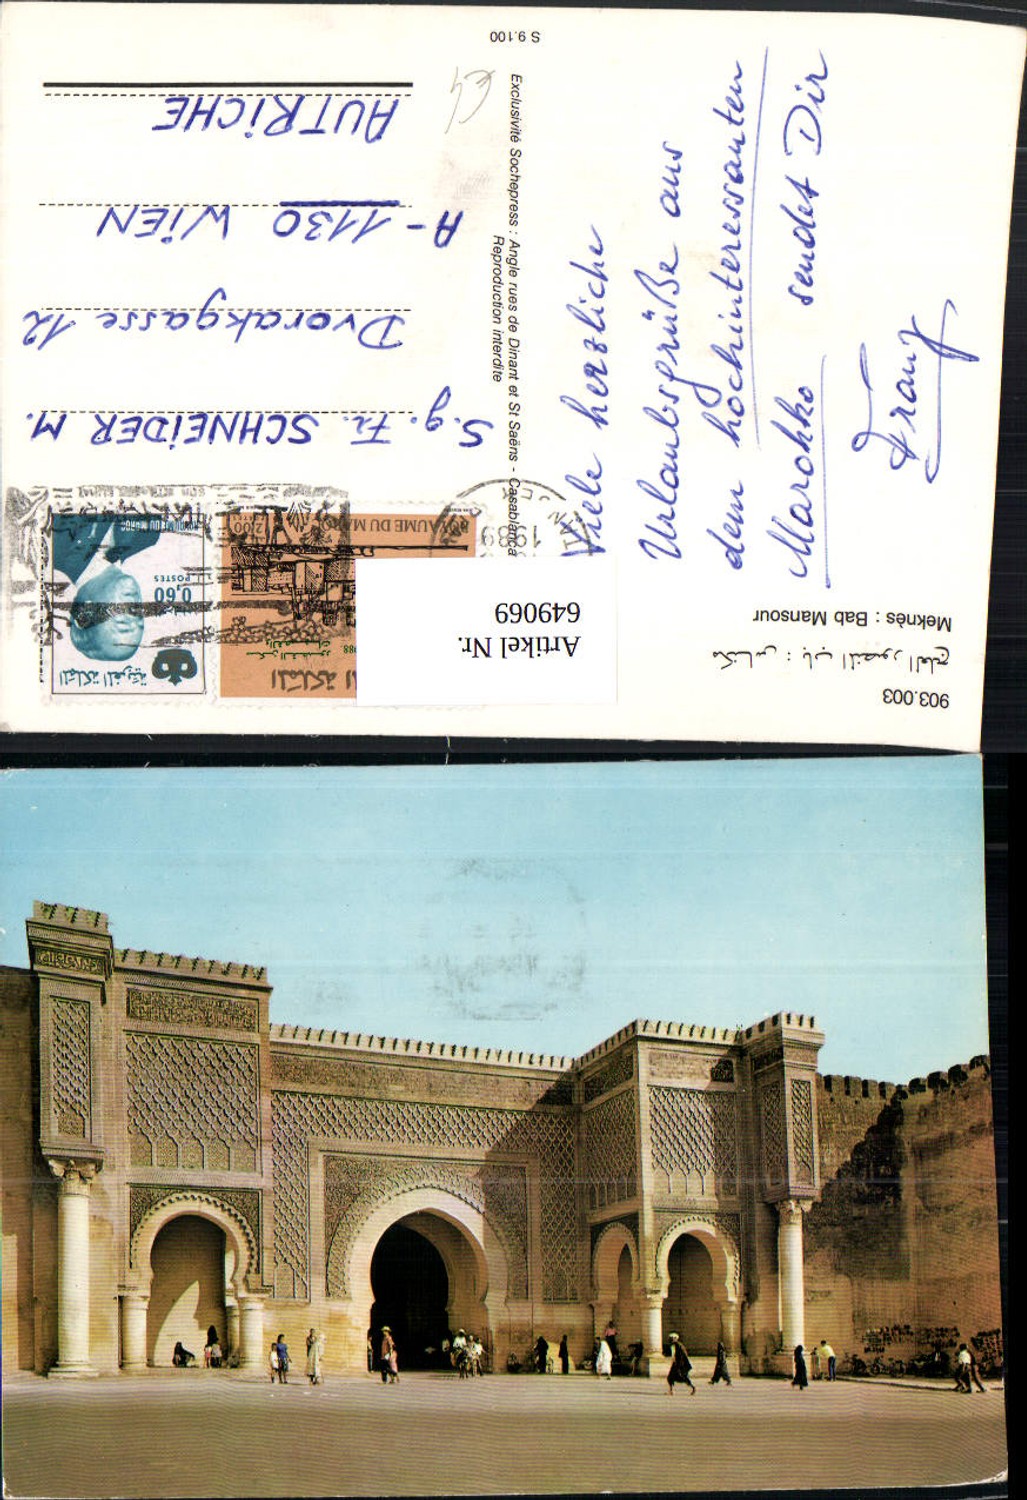 903.003
مكناس : باب المنصور العلج
Meknès : Bab Mansour
Viele herzliche
Urlaubsgrüße aus
dem hochinteressanten
Marokko sendet Dir
Franz
Exclusivité Sochepress : Angle rues de Dinant et St Saëns - Casablanca
Reproduction interdite
S 9.100
€4
S.g. Fr. SCHNEiDER M.
Dvorakgasse 12
A-1130 WiEN
AUTRiCHE
المملكة المغربية
POSTES
0,60
ROYAUME DU MAROC
المملكة ا
1988
ROYAUME DU MA
1989
Artikel Nr.
649069